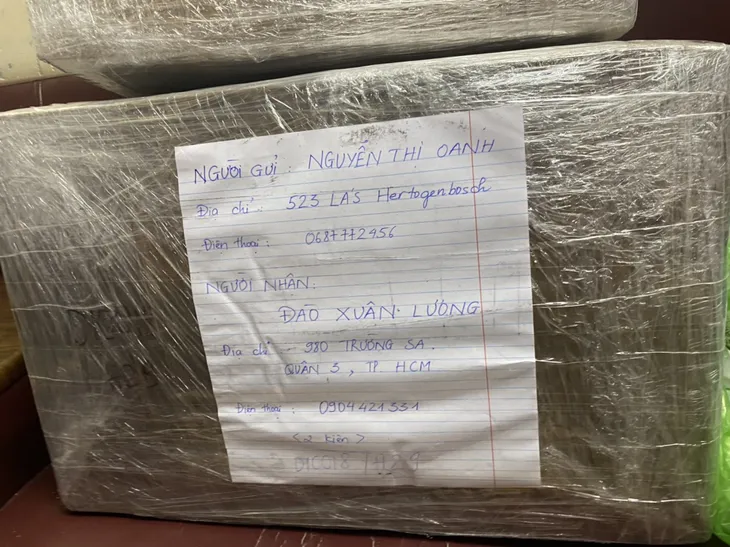 NGƯỜI GỬI : NGUYỄN THỊ OANH
Địa chỉ : 523 LA'S Hertogenbosch
Điện thoại : 0687772956
NGƯỜI NHẬN:
ĐÀO XUÂN LƯƠNG
Địa chỉ 980 TRƯỜNG SA.
QUẬN 3, TP HCM
Điện thoại : 0904421331
<2 kiện>